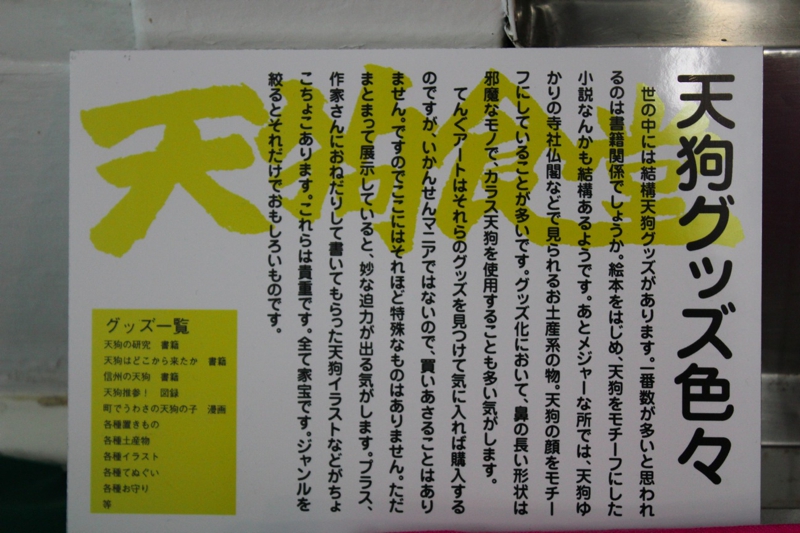 天狗グッズ色々
世の中には結構天狗グッズがあります。一番数が多いと思われ
るのは書籍関係でしょうか。絵本をはじめ、天狗をモチーフにした
小説なんかも結構あるようです。あとメジャーな所では、天狗ゆ
かりの寺社仏閣などで見られるお土産系の物。天狗の顔をモチー
フにしていることが多いです。グッズ化において、鼻の長い形状は
邪魔なモノで、カラス天狗を使用することも多い気がします。
てんぐアートはそれらのグッズを見つけて気に入れば購入する
のですが、いかんせんマニアではないので、買いあさることはあり
ません。ですのでここにはそれほど特殊なものはありません。ただ
まとまって展示していると、妙な迫力が出る気がします。プラス、
作家さんにおねだりして書いてもらった天狗イラストなどがちょ
こちょこあります。これらは貴重です。全て家宝です。ジャンルを
絞るとそれだけでおもしろいものです。
天狗食堂
グッズ一覧
天狗の研究 書籍
天狗はどこから来たか 書籍
信州の天狗 書籍
天狗推参! 図録
町でうわさの天狗の子 漫画
各種置きもの
各種土産物
各種イラスト
各種てぬぐい
各種お守り
等